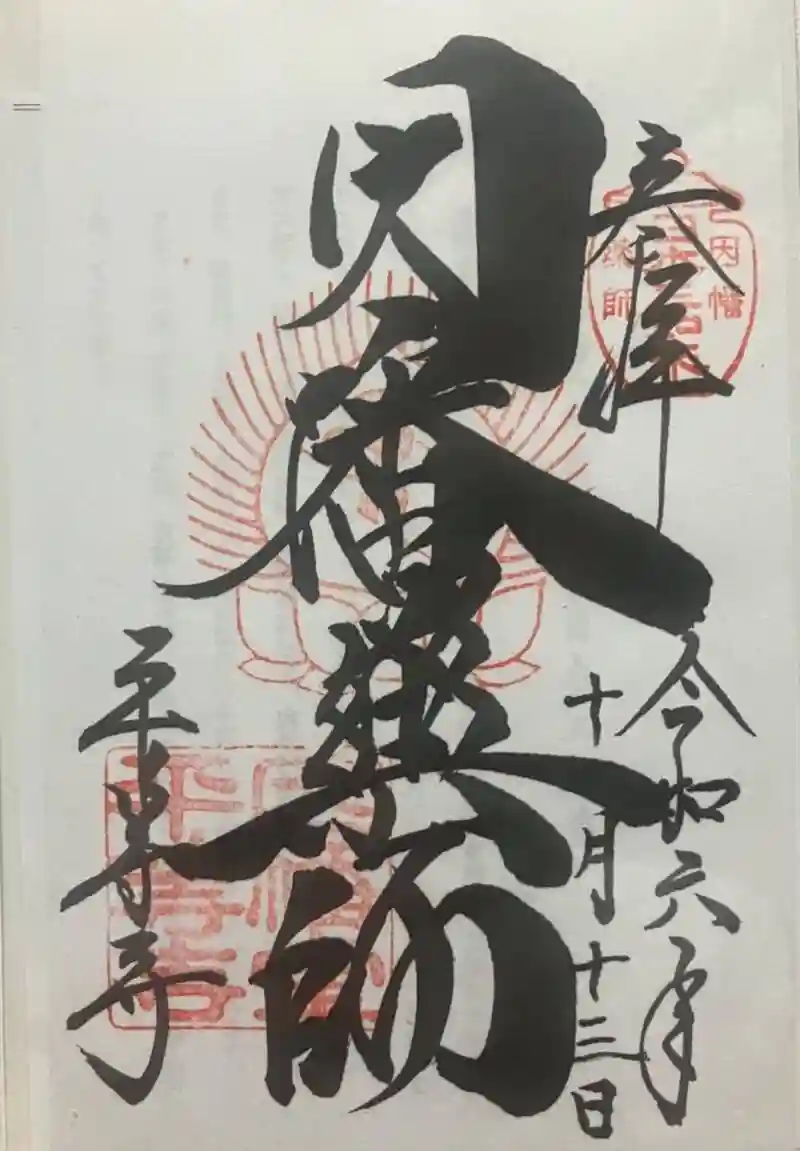 奉拝
令和六年
十月十三日
因幡
薬師
因幡薬師
平等寺
因幡堂
平等寺